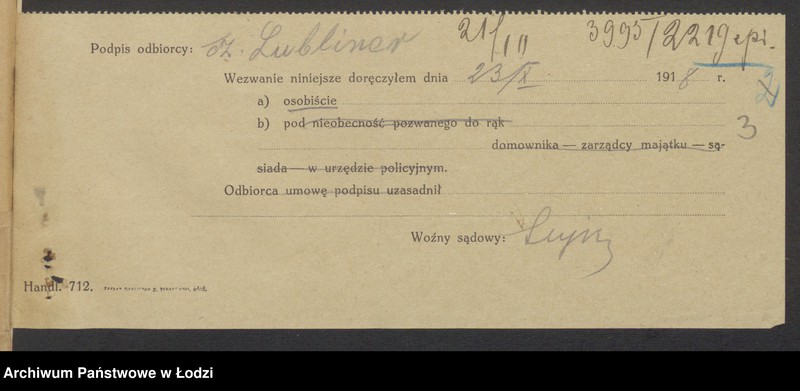 21/11 3995/2219 epi.
Podpis odbiorcy: Sz. Lubliner
Wezwanie niniejsze doręczyłem dnia 23/X 1918 r.
2
a) osobiście
b) pod nieobecność pozwanego do rąk
3
domownika — zarządcy majątku — są-
siada — w urzędzie policyjnym.
Odbiorca umowę podpisu uzasadnił
Woźny sądowy:
Handl. 712.
Archiwum Państwowe w Łodzi